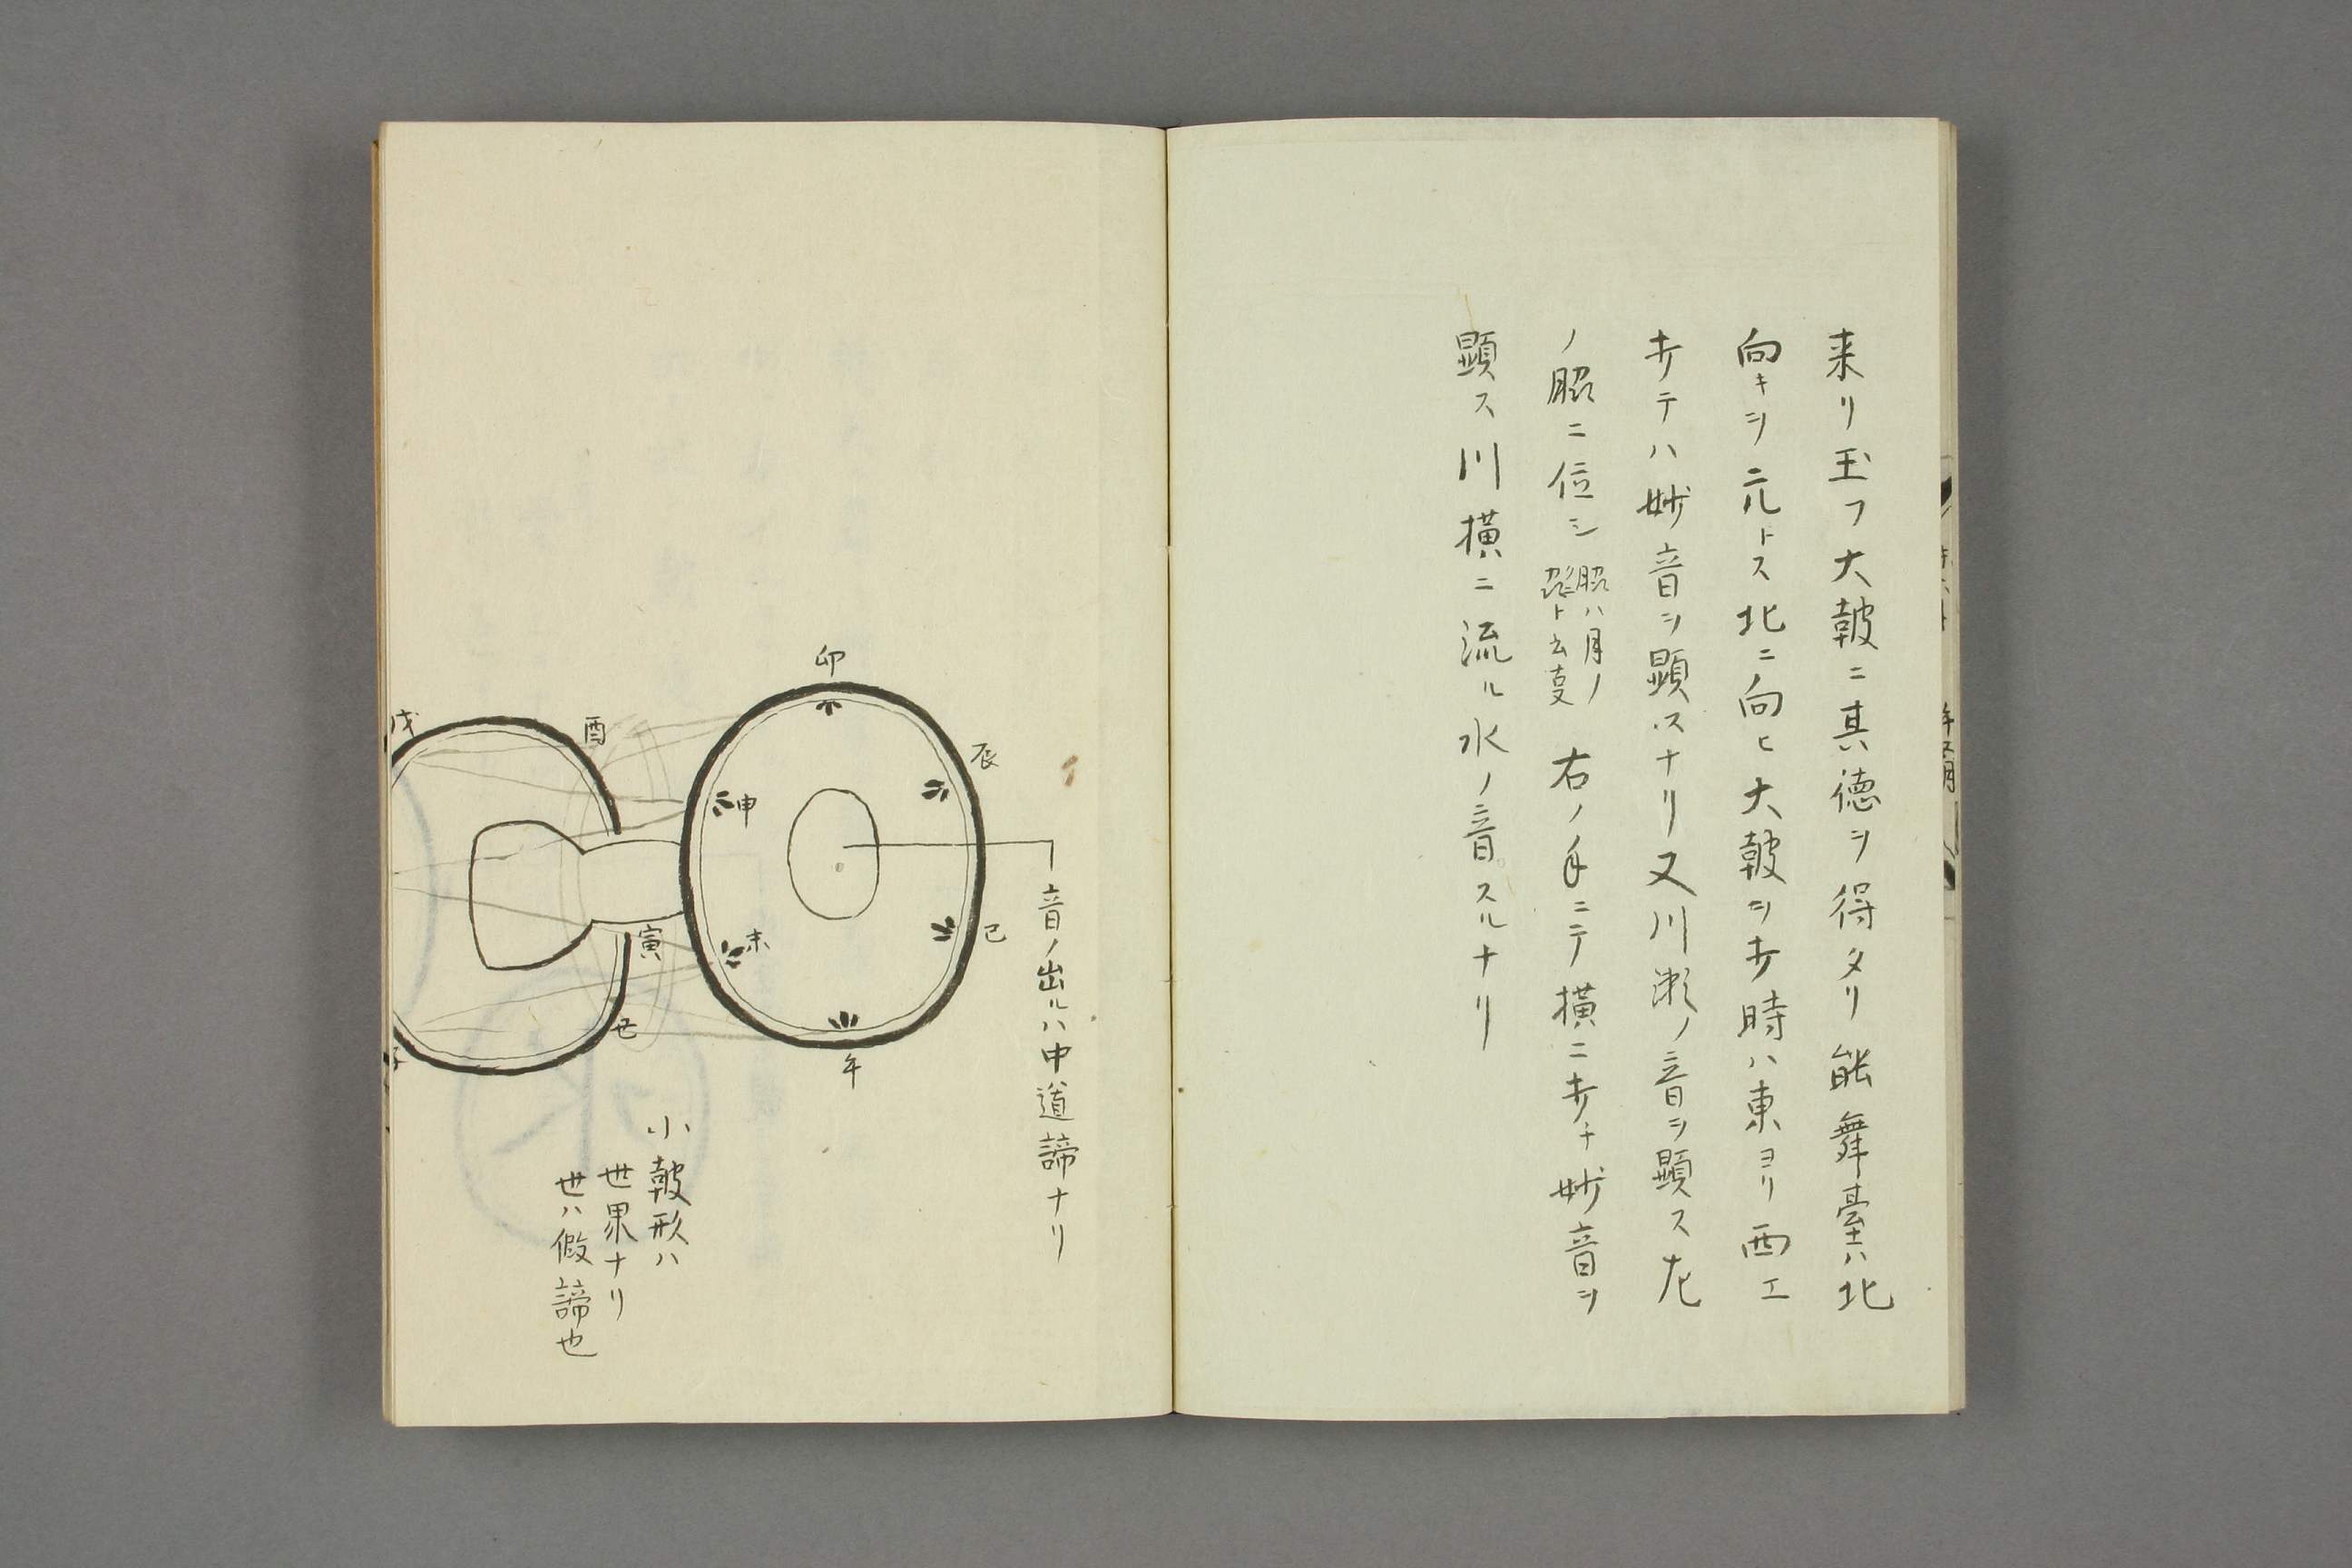 来リ玉フ大皷ニ其徳ヲ得タリ能舞臺ハ北
向キヲ元トス北ニ向ヒ大皷ヲ打時ハ東ヨリ西エ
打テハ妙音ヲ顕スナリ又川瀬ノ音ヲ顕ス左
ノ脇ニ位シ
右ノ手ニテ横ニ打チ妙音ヲ
顕ス川横ニ流ル水ノ音スルナリ
音ノ出ルハ中道諦ナリ
卯
辰
巳
午
未
申
酉
戌
寅
丑
子
小皷形ハ
世界ナリ
世ハ假諦也